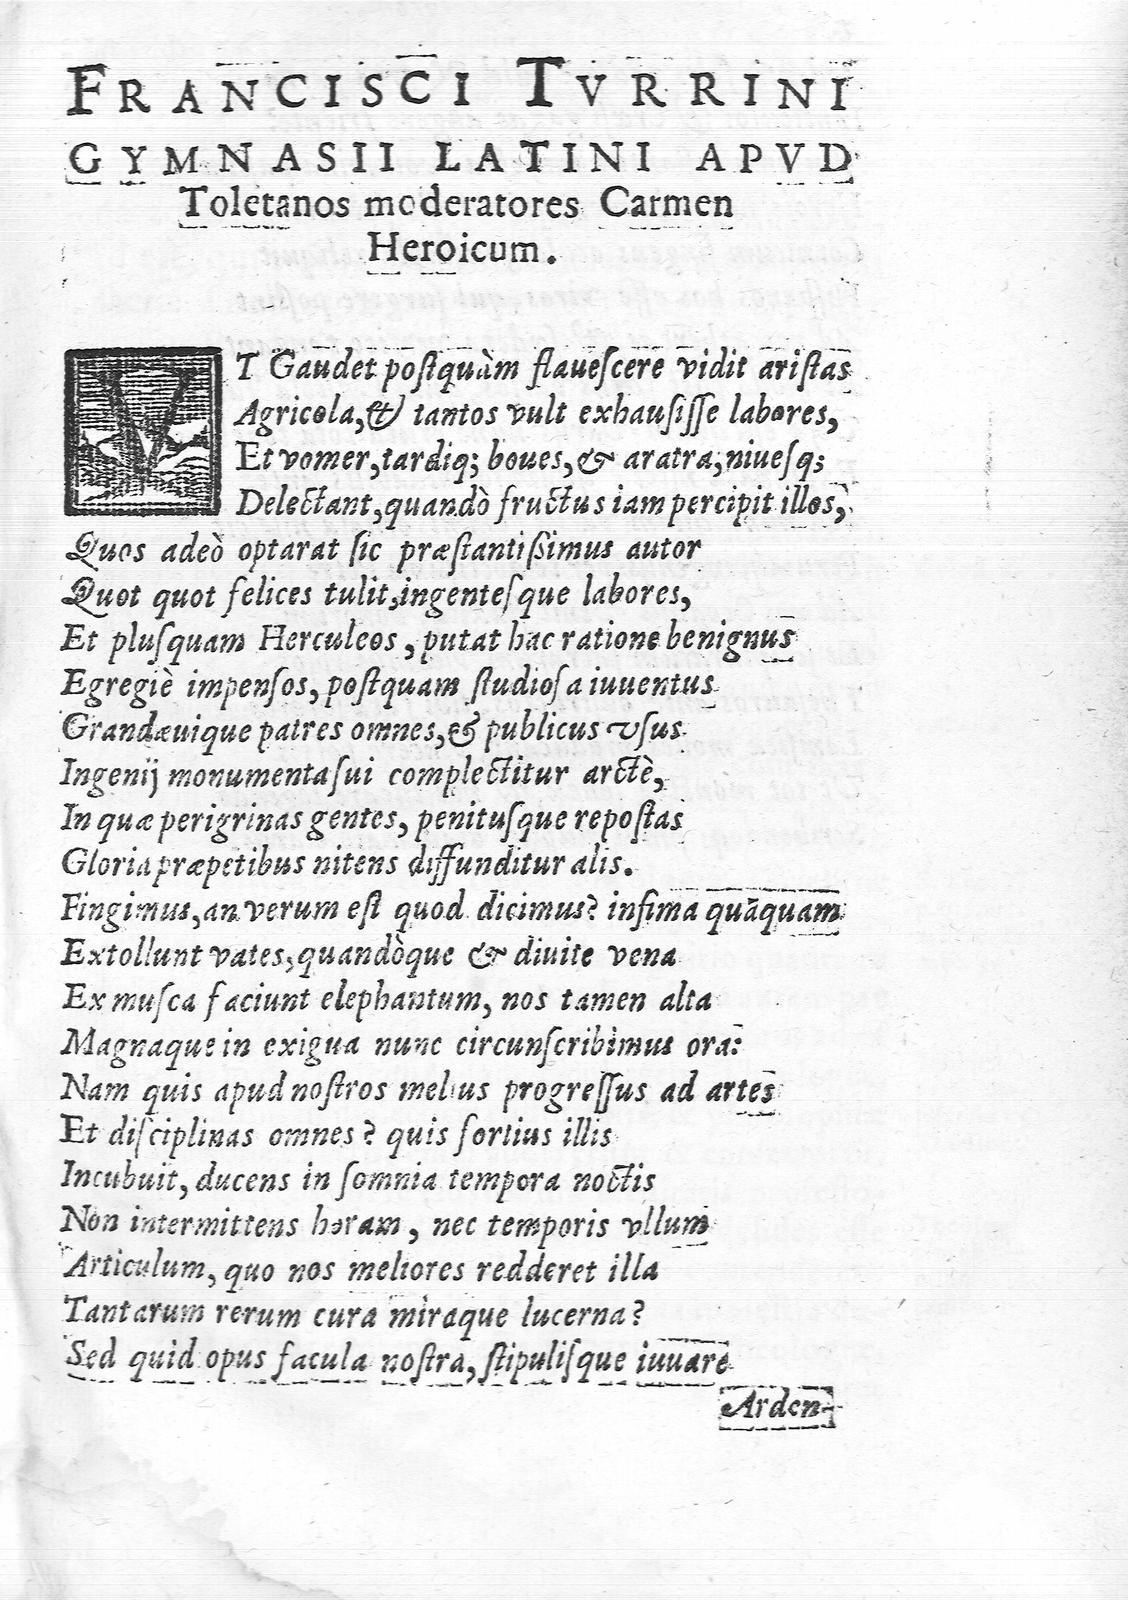 FRANCISCI TVRRINI
GYMNASII LATINI APVD
Toletanos moderatores Carmen
Heroicum.
VT Gaudet postquàm flauescere vidit aristas
Agricola, & tantos vult exhausisse labores,
Et vomer, tardiq; boues, & aratra, niuesq;
Delectant, quandò fructus iam percipit illos,
Quos adeò optarat sic præstantissimus autor
Quot quot felices tulit, ingentesque labores,
Et plusquam Herculeos, putat hac ratione benignus
Egregiè impensos, postquam studiosa iuuentus
Grandæuique patres omnes, & publicus vsus
Ingenij monumenta sui complectitur arctè,
In quæ perigrinas gentes, penitusque repostas
Gloria præpetibus nitens diffunditur alis.
Fingimus, an verum est quod dicimus? infima quãquam
Extollunt vates, quandòque & diuite vena
Ex musca faciunt elephantum, nos tamen alta
Magnaque in exigua nunc circunscribimus ora:
Nam quis apud nostros melius progressus ad artes
Et disciplinas omnes? quis fortius illis
Incubuit, ducens in somnia tempora noctis
Non intermittens horam, nec temporis vllum
Articulum, quo nos meliores redderet illa
Tantarum rerum cura miraque lucerna?
Sed quid opus facula nostra, stipulisque iuuare
Arden-